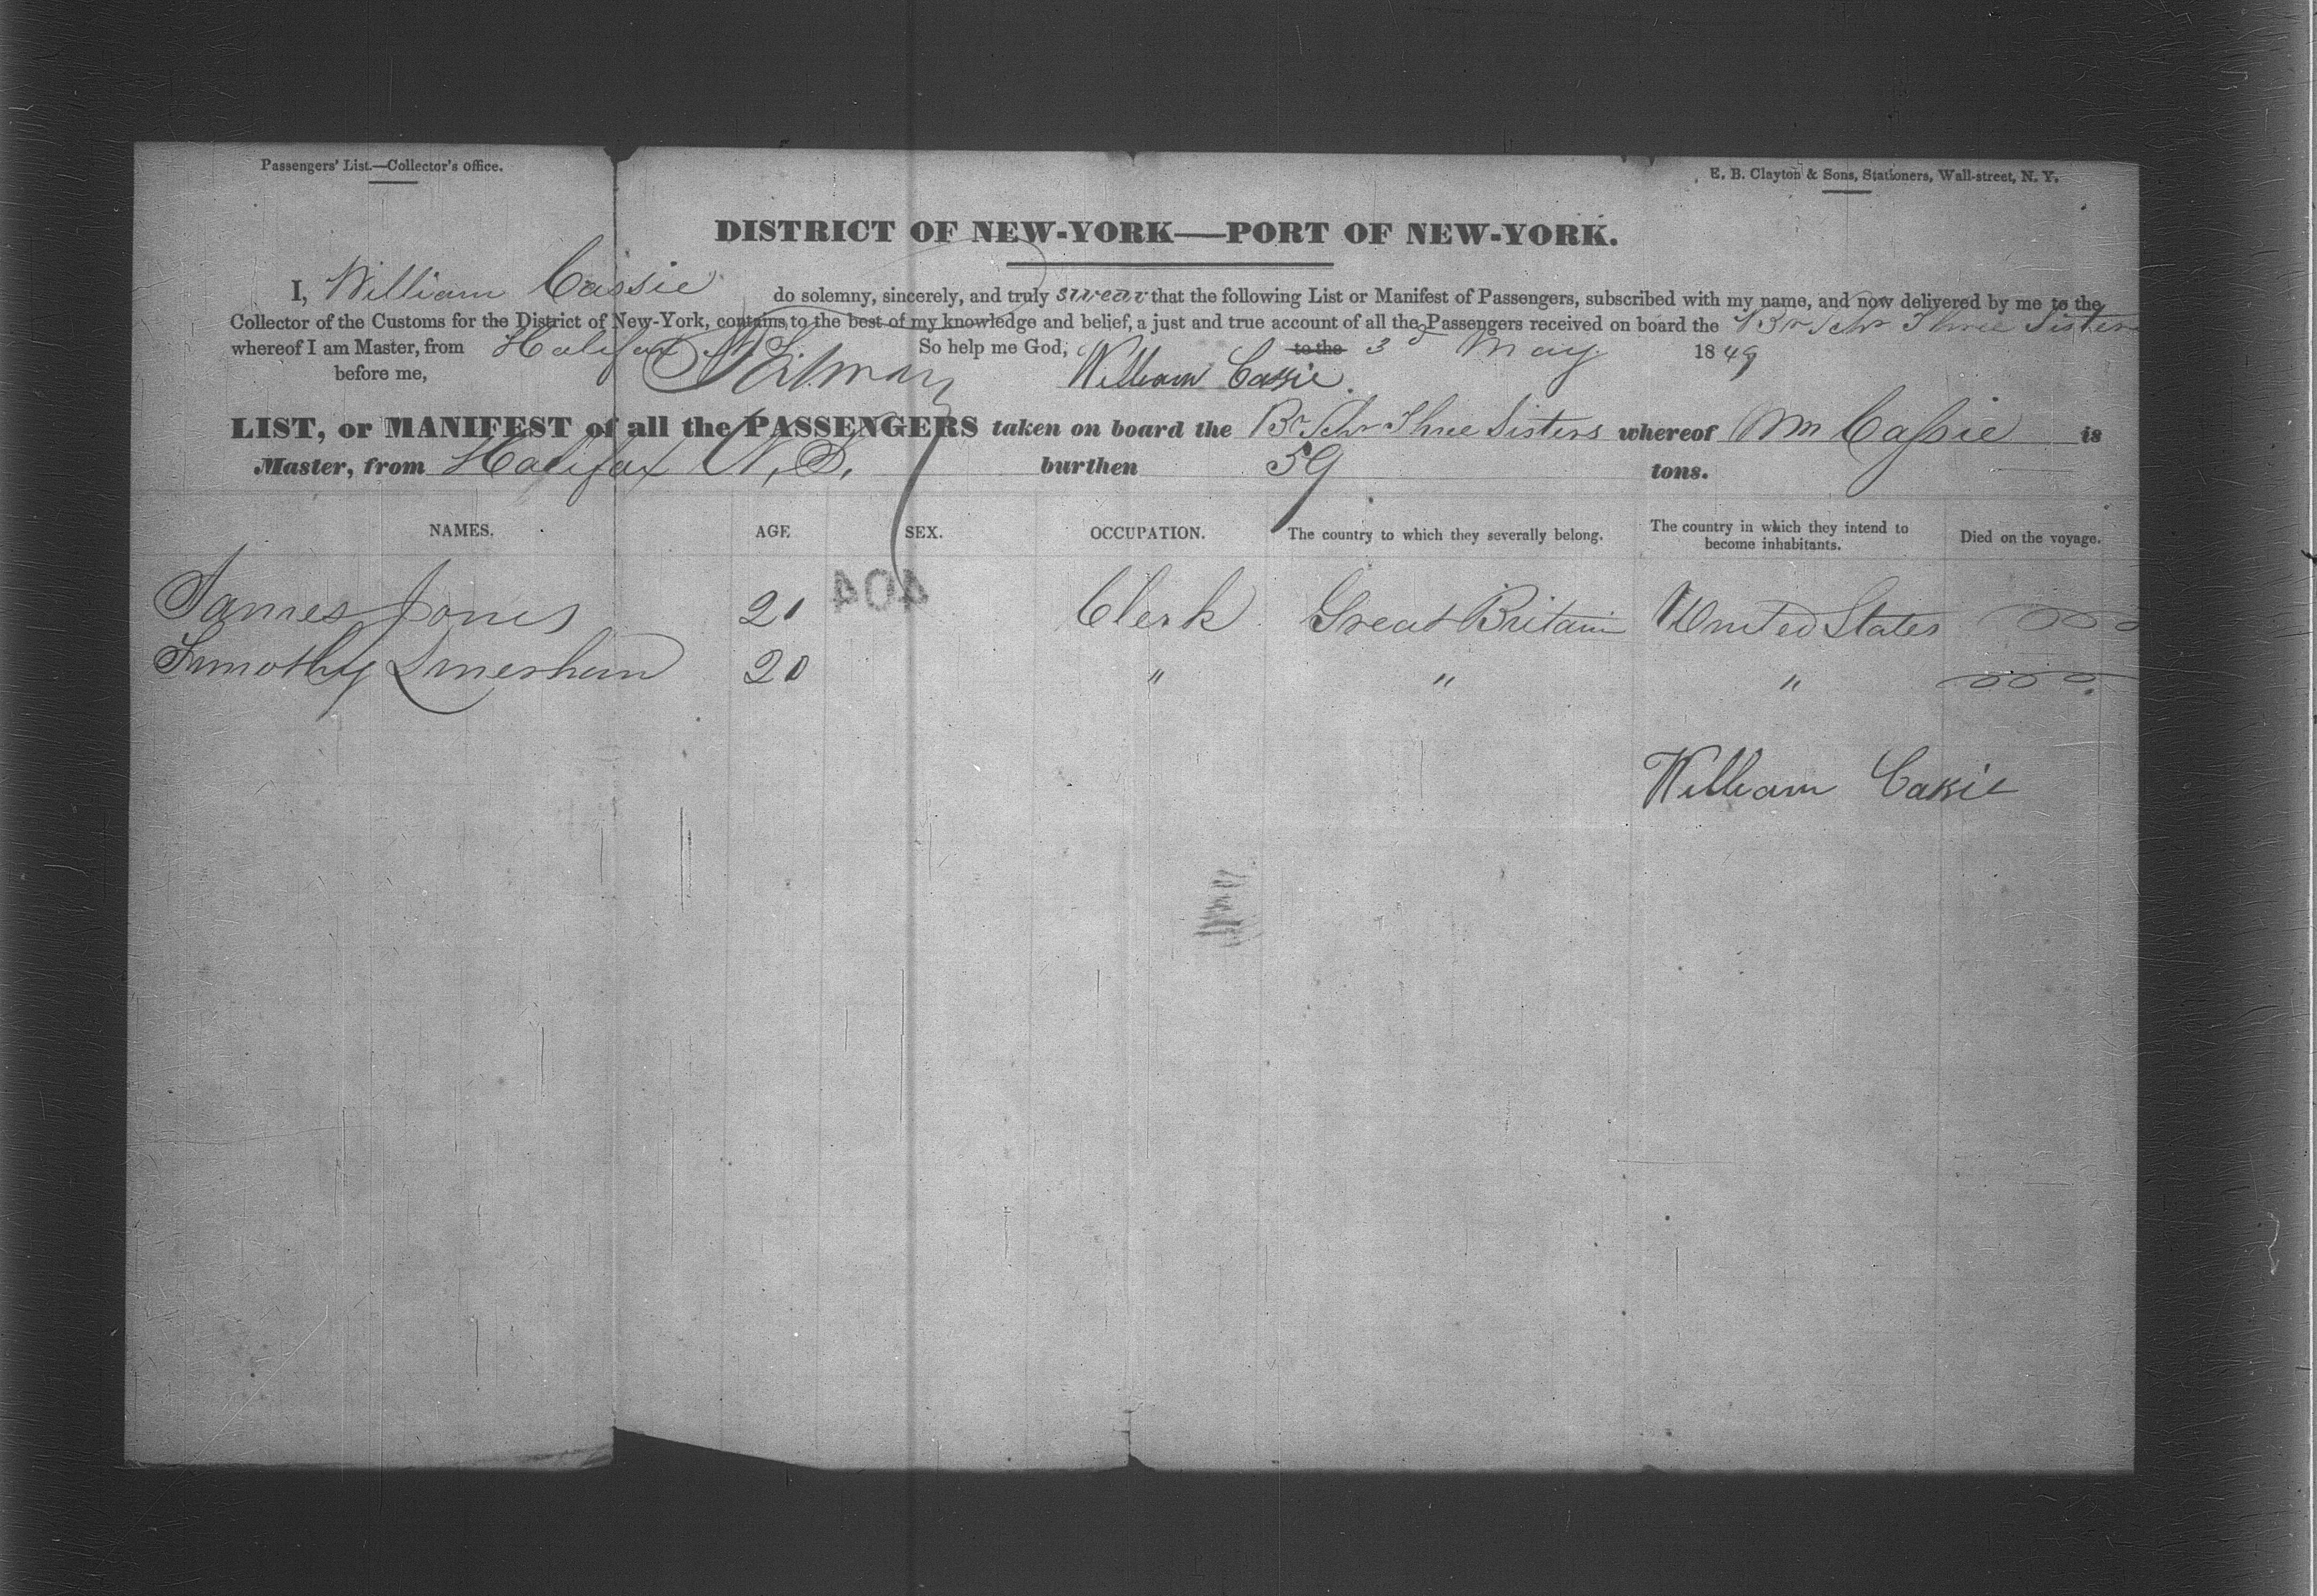 Passengers' List.—Collector's office.
E. B. Clayton & Sons, Stationers, Wall-street, N. Y.
DISTRICT OF NEW-YORK—PORT OF NEW-YORK.
I, William Cassie do solemny, sincerely, and truly swear that the following List or Manifest of Passengers, subscribed with my name, and now delivered by me to the
Collector of the Customs for the District of New-York, contains, to the best of my knowledge and belief, a just and true account of all the Passengers received on board the Br Schr Three Sisters
whereof I am Master, from Halifax N.S. So help me God, to the 3d May 1849
before me, William Cassie
LIST, or MANIFEST of all the PASSENGERS taken on board the Br. Schr Three Sisters whereof Wm Cassie is
Master, from Halifax N.S. burthen 59 tons.
NAMES. AGE SEX. OCCUPATION. The country to which they severally belong. The country in which they intend to become inhabitants. Died on the voyage.
404
James Jones 21 Clerk Great Britain United States
Timothy 20 " " "
William Cassie